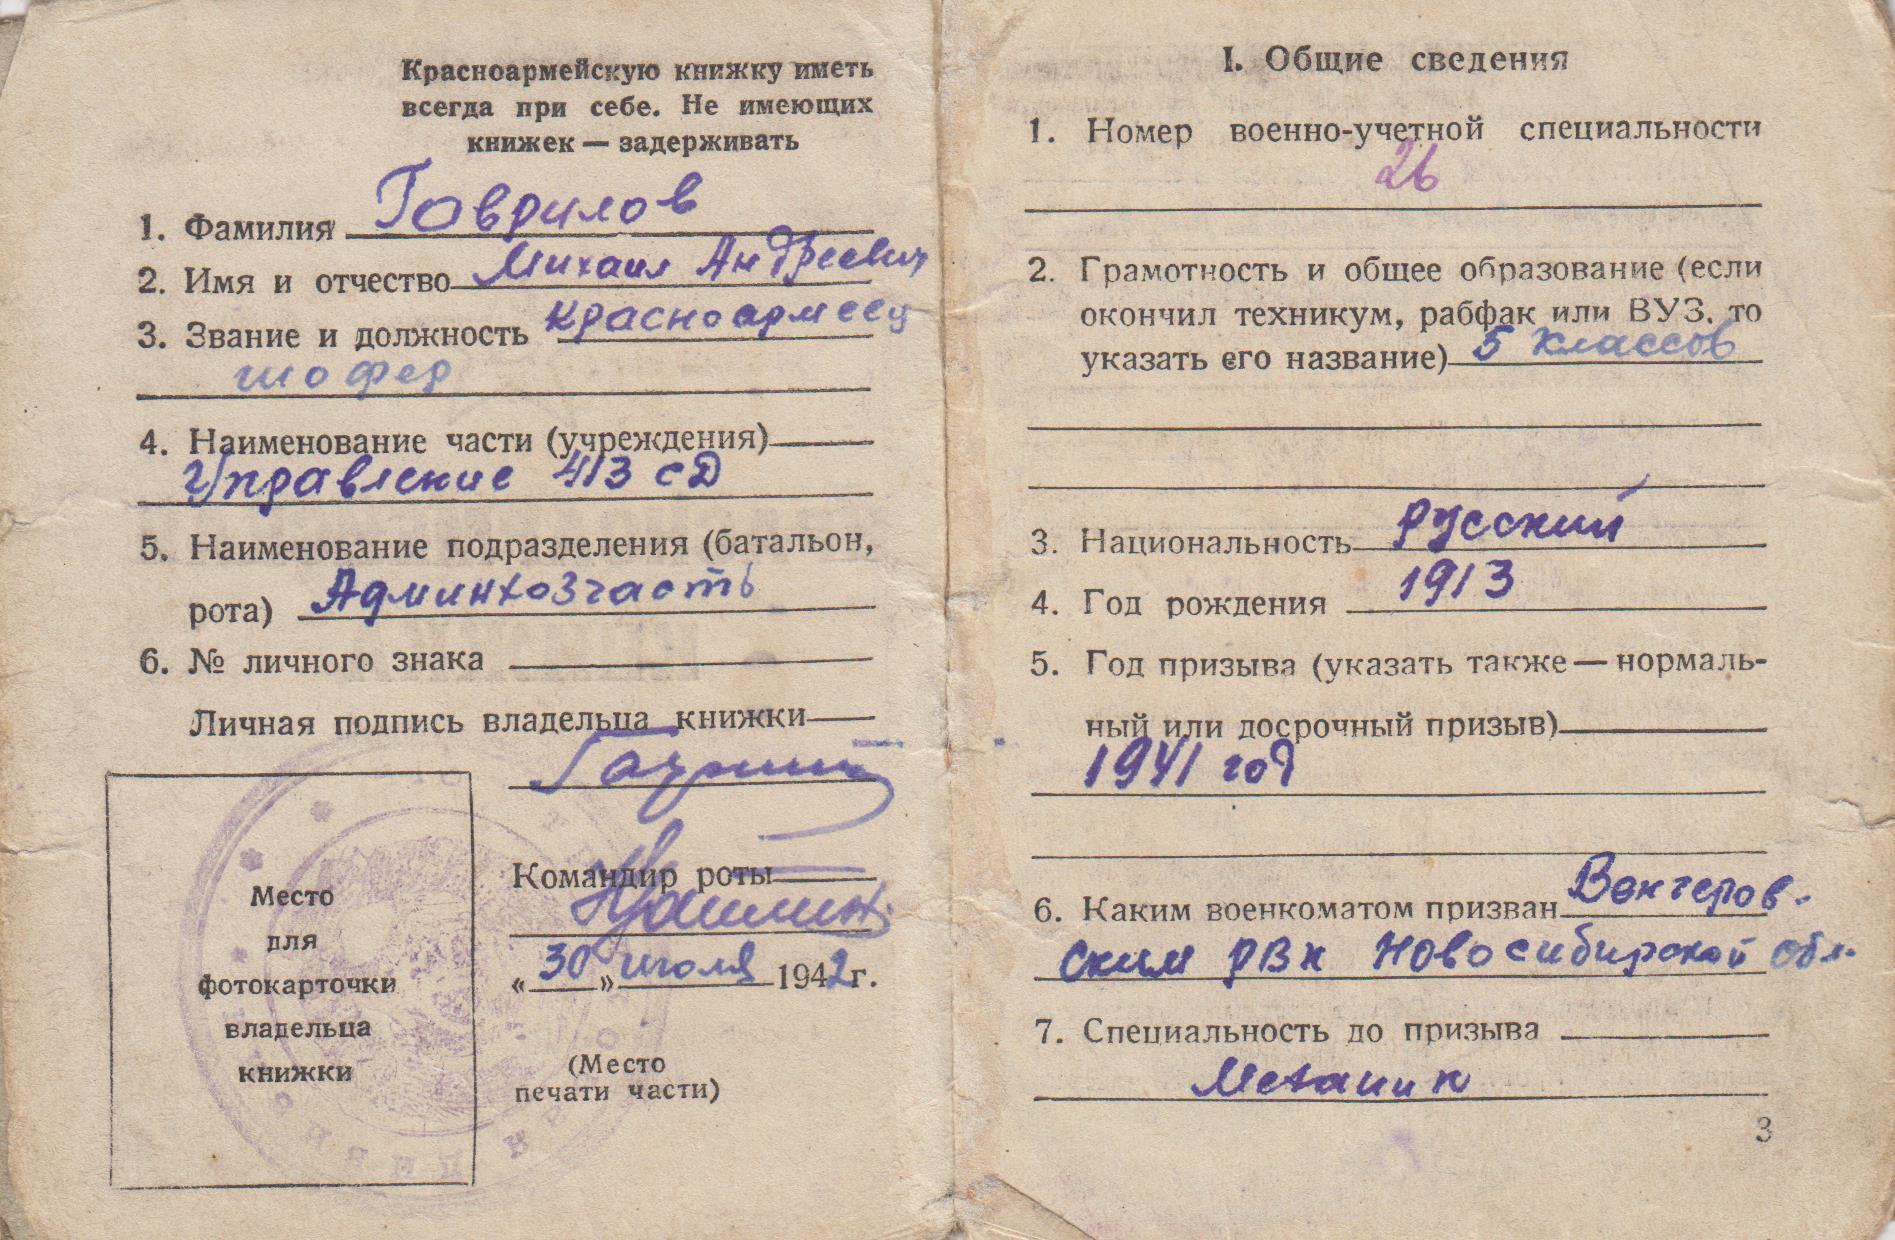 Красноармейскую книжку иметь
всегда при себе. Не имеющих
книжек — задерживать
1. Фамилия Гаврилов
2. Имя и отчество Михаил Андреевич
3. Звание и должность красноармеец
шофер
4. Наименование части (учреждения)
Управление 413 сД
5. Наименование подразделения (батальон,
рота) Админхозчасть
6. № личного знака
Личная подпись владельца книжки
Командир роты
«30» июля 1942г.
Место
для
фотокарточки
владельца
книжки
(Место
печати части)
I. Общие сведения
1. Номер военно-учетной специальности
26
2. Грамотность и общее образование (если
окончил техникум, рабфак или ВУЗ, то
указать его название) 5 классов
3. Национальность русский
4. Год рождения 1913
5. Год призыва (указать также — нормаль-
ный или досрочный призыв)
1941 год
6. Каким военкоматом призван Венгеров-
ским РВК Новосибирской обл.
7. Специальность до призыва
Механик
3